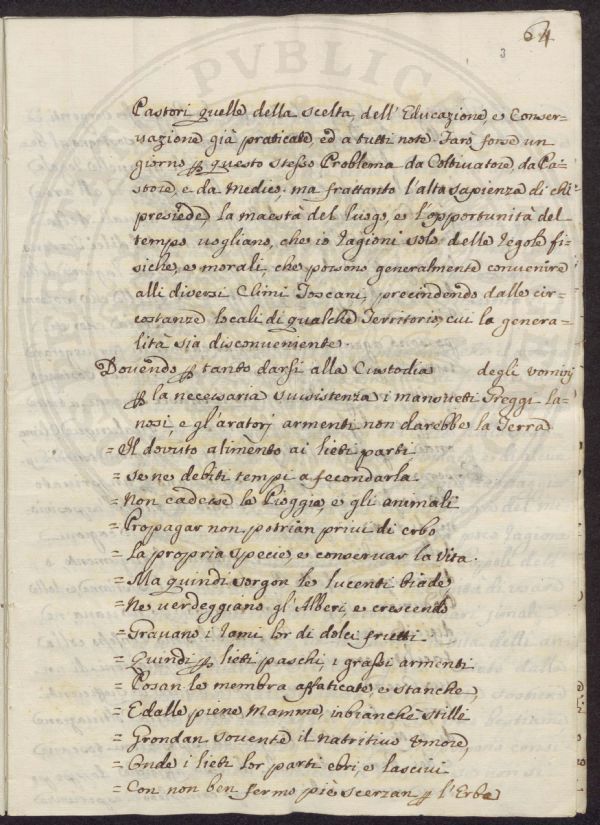 64
3
Pastori quelle della scelta, dell'Educazione, e Conser=
vazione già praticate, ed a tutti note. Sarò forse un
giorno p questo stesso Problema da Coltivatore, da Pa=
store, e da Medico; ma frattanto l'alta sapienza di chi
presiede, la maestà del luogo, e l'opportunità del
tempo vogliano, che io ragioni solo delle regole fi=
siche, e morali, che possono generalmente convenire
alli diversi Climi Toscani, precindendo dalle cir=
costanze locali di qualche Territorio, cui la genera=
lità sia disconveniente.
Dovendo p tanto darsi alla Custodia degli vominj
p la necessaria sussistenza i mansueti Greggi la=
nosi, e gl'aratorj armenti non darebbe la Terra
= Il dovuto alimento ai lieti parti
= se ne debiti tempi a fecondarla
= Non cadesse la Pioggia, e gli animali
= Propagar non potrian privi di cibo
= La propria specie, e conservar la vita.
= Ma quindi sorgon le lucenti biade
= Ne verdeggiano gl'Alberi, e crescendo
= Gravano i rami lor di dolci frutti.
= Quindi p lieti paschi i grassi armenti
= Posan le membra affaticate, e stanche,
= E dalle piene Mamme, in bianche stille
= Grondan sovente il nutritivo umore,
= Onde i lieti lor parti ebri, e lascivi
= Con non ben fermo piè scerzan p l'Erbe
PVBLICA